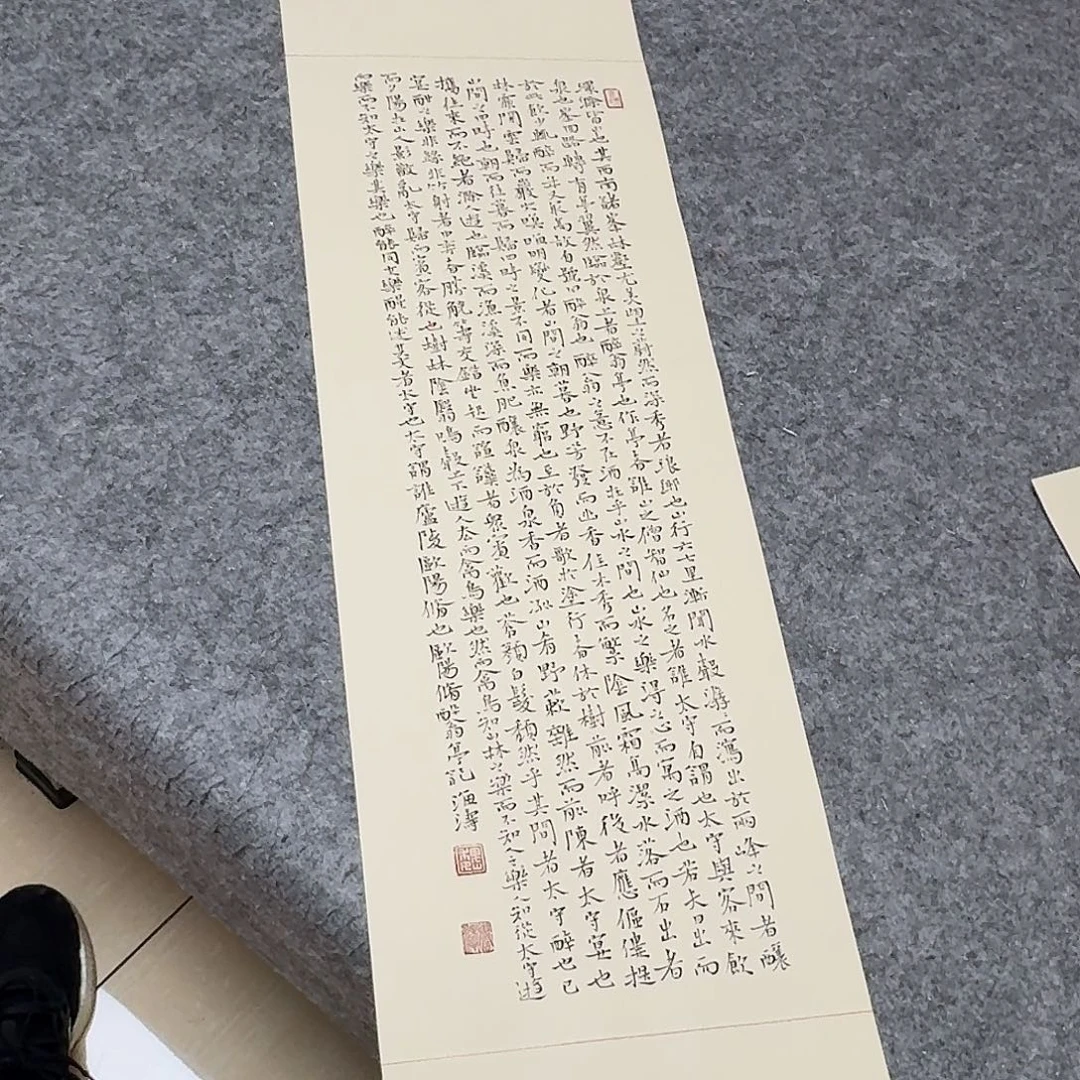 環滁皆山也其西南諸峯林壑尤美望之蔚然而深秀者琅邪也山行六七里漸聞水聲潺潺而瀉出於兩峰之間者釀
泉也峯回路轉有亭翼然臨於泉上者醉翁亭也作亭者誰山之僧智仙也名之者誰太守自謂也太守與客來飲
於此飲少輒醉而年又最高故自號曰醉翁也醉翁之意不在酒在乎山水之間也山水之樂得之心而寓之酒也若夫日出而
林霏開雲歸而巖穴暝晦明變化者山間之朝暮也野芳發而幽香佳木秀而繁陰風霜高潔水落而石出者
山間之四時也朝而往暮而歸四時之景不同而樂亦無窮也至於負者歌於塗行者休於樹前者呼後者應傴僂提
攜往來而不絕者滁人遊也臨溪而漁溪深而魚肥釀泉為酒泉香而酒洌山肴野蔌雜然而前陳者太守宴也
宴酣之樂非絲非竹射者中弈者勝觥籌交錯坐起而諠譁者眾賓歡也蒼顏白髮頹然乎其間者太守醉也已
而夕陽在山人影散亂太守歸而賓客從也樹林陰翳鳴聲上下遊人去而禽鳥樂也然而禽鳥知山林之樂而不知人之樂人知從太守遊
而樂而不知太守之樂其樂也醉能同其樂醒能述其文者太守也太守謂誰廬陵歐陽脩也歐陽脩醉翁亭記